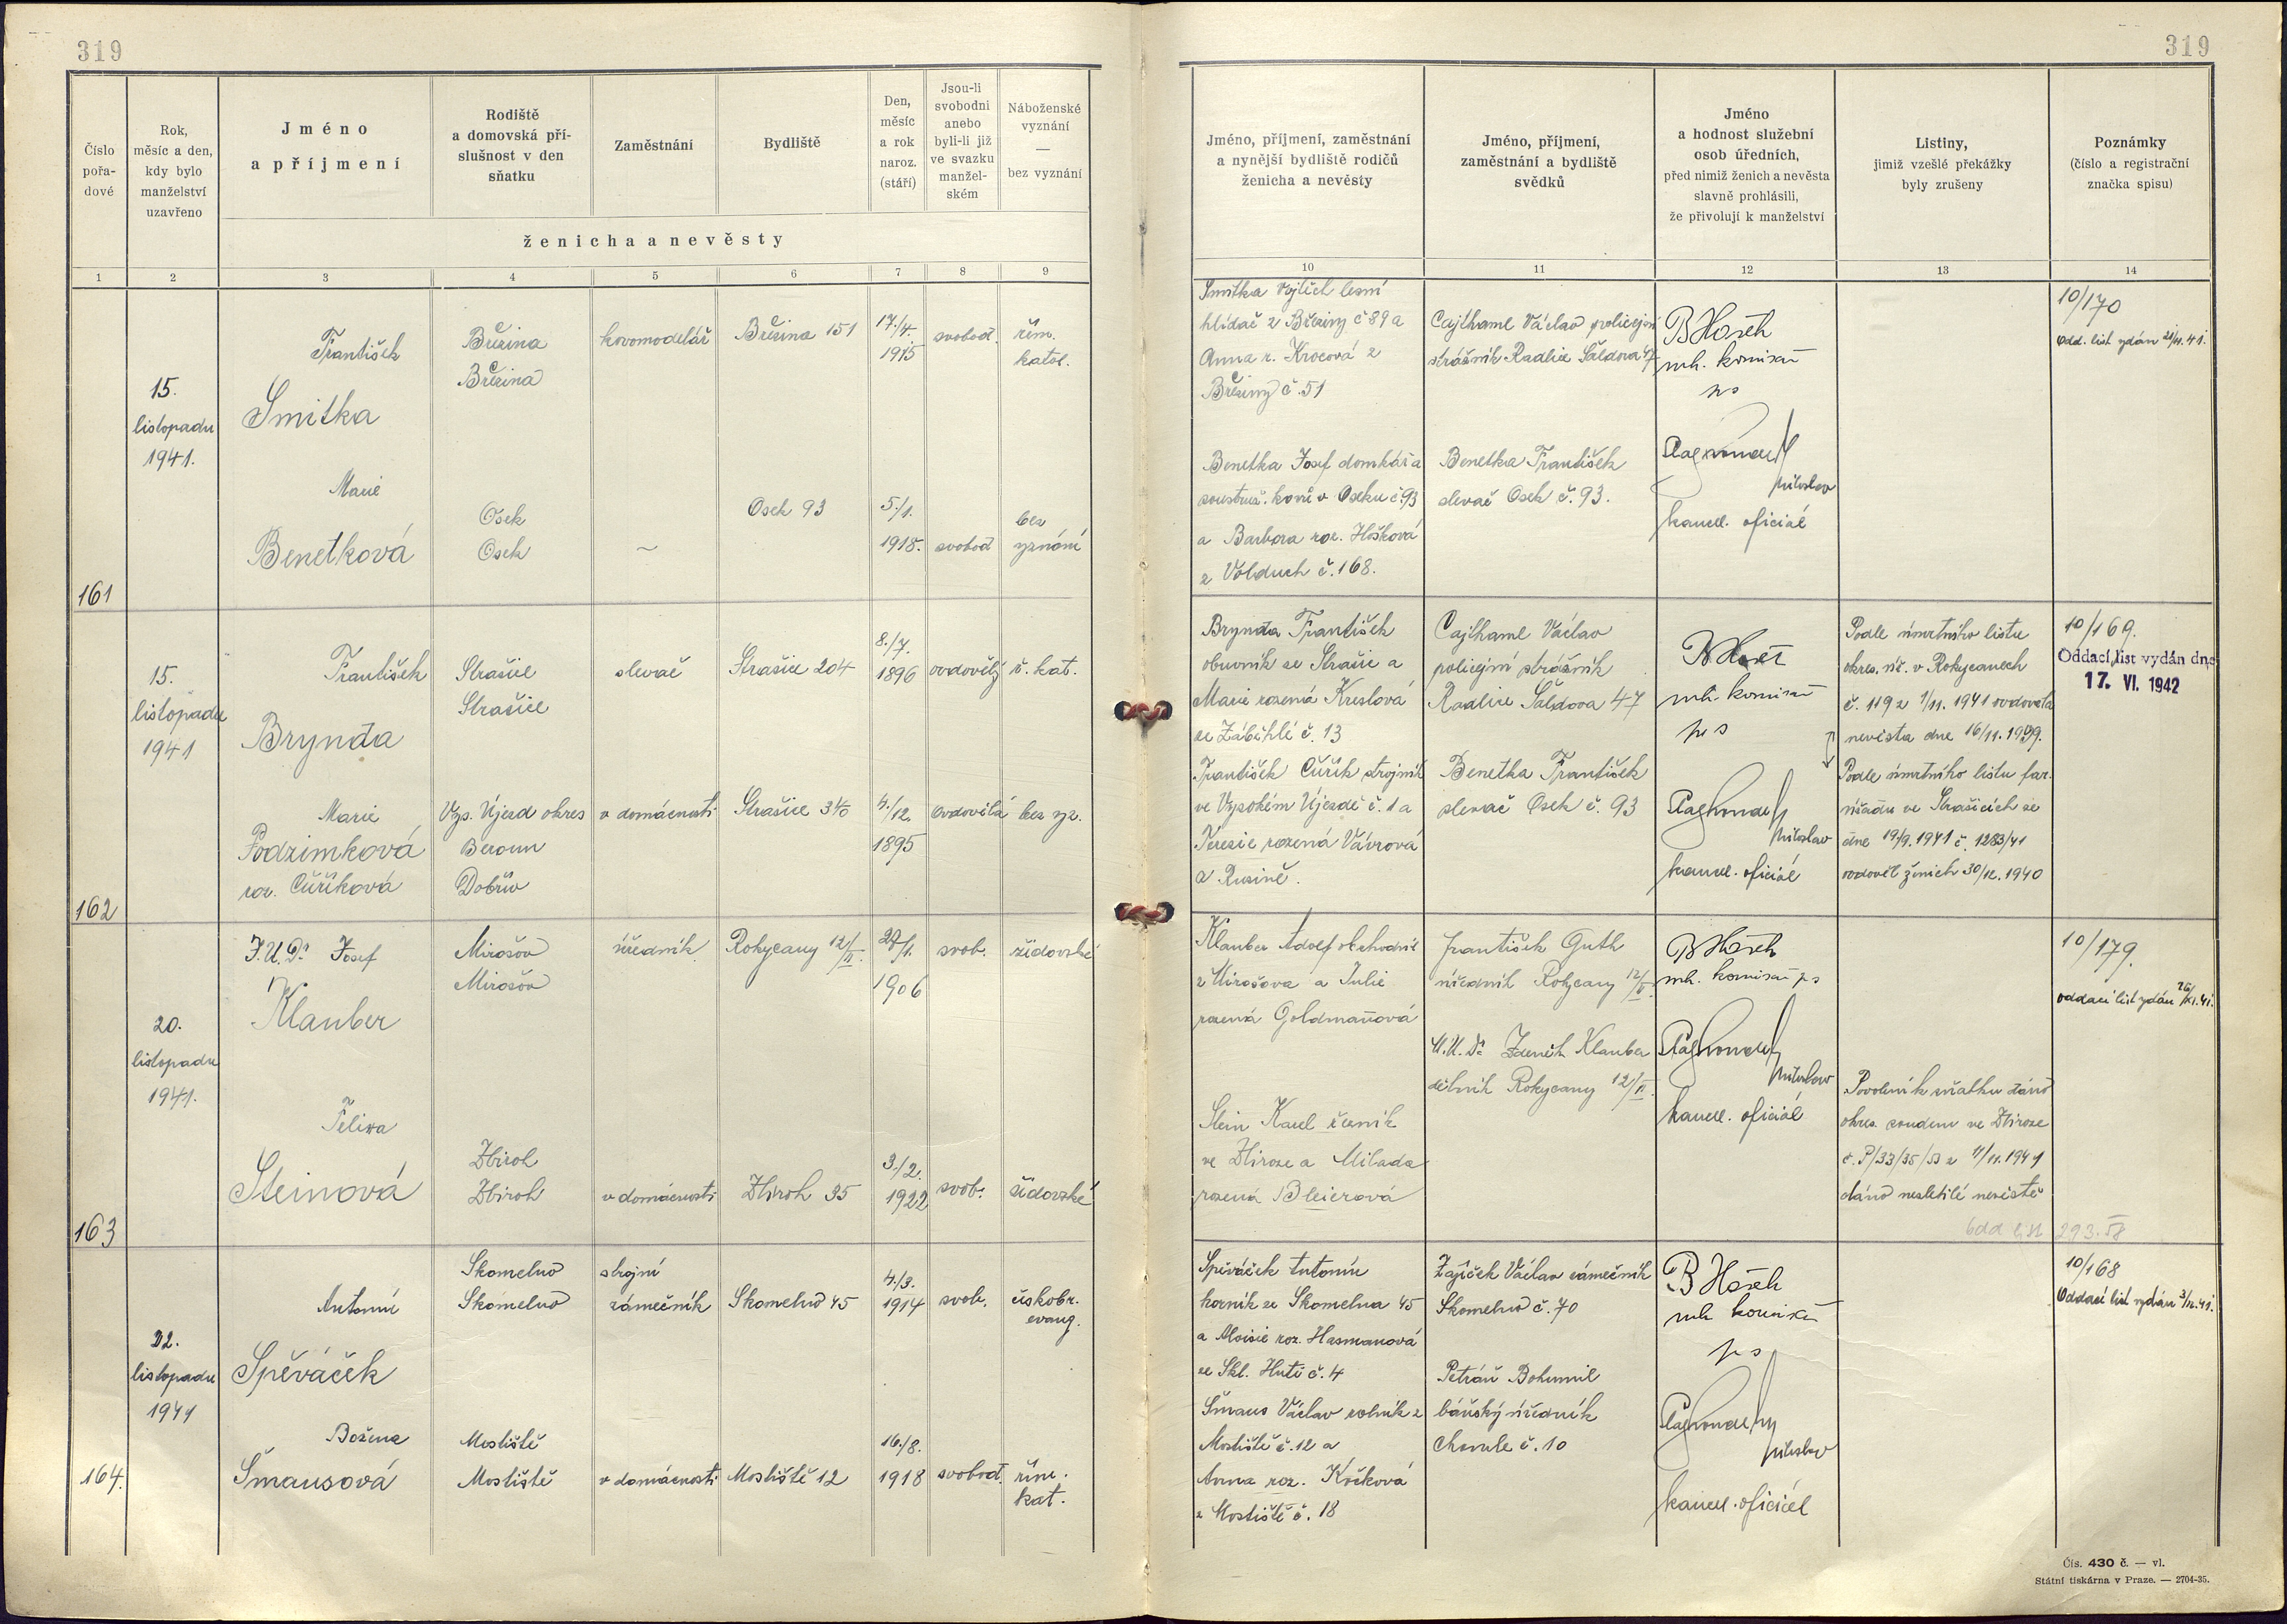 319
319
Číslo pořa-dové
Rok, měsíc a den, kdy bylo manželství uzavřeno
Jméno a příjmení
Rodiště a domovská pří-slušnost v den sňatku
Zaměstnání
Bydliště
Den, měsíc a rok naroz. (stáří)
Jsou-li svobodni anebo byli-li již ve svazku manžel-ském
Náboženské vyznání — bez vyznání
ženicha a nevěsty
Jméno, příjmení, zaměstnání a nynější bydliště rodičů ženicha a nevěsty
Jméno, příjmení, zaměstnání a bydliště svědků
Jméno a hodnost služební osob úředních, před nimiž ženich a nevěsta slavně prohlásili, že přivolují k manželství
Listiny, jimiž vzešlé překážky byly zrušeny
Poznámky (číslo a registrační značka spisu)
1 2 3 4 5 6 7 8 9 10 11 12 13 14
161
15.
listopadu
1941.
František
Smitka
Březina
Březina
kovomodelář
Březina 151
17./4.
1915
svobod.
řím.
katol.
Marie
Benetková
Osek
Osek
~
Osek 93
5./1.
1918.
svobod
bez
vyznání
Smitka Vojtěch lesní
hlídač z Březiny č 89 a
Anna r. Krocová z
Březiny č. 51
Benetka Josef domkář a
soustruž. kovů v Oseku č. 93
a Barbora roz. Hošková
z Volduch č. 168.
Cajthaml Václav policejní
strážník Radlice Šaldova 47
Benetka František
slevač Osek č. 93.
B Hošek
mh. komisař
ps
Miloslav
kancel. oficiál
10/170
Odd. list vydán 21/11.41.
162
15.
listopadu
1941
František
Brynda
Strašice
Strašice
slevač
Strašice 204
8./7.
1896
ovdovělý
ř. kat.
Marie
Podzimková
roz. Cuříková
Vys. Újezd okres
Beroun
Dobřív
v domácnosti
Strašice 340
4./12.
1895
ovdovělá
bez vyz.
Brynda František
obuvník ze Strašic a
Marie rozená Kreslová
ze Záběhlé č. 13
František Cuřík strojník
ve Vysokém Újezdě č. 1 a
Terezie rozená Vávrová
z Rusině.
Cajthaml Václav
policejní strážník
Radlice Šaldova 47
Benetka František
slevač Osek č. 93
B Hošek
mh. komisař
ps
Miloslav
kancel. oficiál
Podle úmrtního listu
okres. úř. v Rokycanech
č. 119 z 1/11. 1941 ovdověla
nevěsta dne 16/11. 1939.
Podle úmrtního listu far.
úřadu ve Strašicích ze
dne 19/9. 1941 č. 1283/41
ovdověl ženich 30/12. 1940
10/169.
Oddací list vydán dne
17. VI. 1942
163
20.
listopadu
1941.
J.U.Dr Josef
Klauber
Mirošov
Mirošov
úředník
Rokycany 12/II.
1906
svob.
židovské
Felixa
Steinová
Zbiroh
Zbiroh
v domácnosti
Zbiroh 35
3./2.
1922
svob.
židovské
Klauber Adolf obchodník
z Mirošova a Julie
rozená Goldmanová
Stein Karel řezník
ve Zbiroze a Milada
rozená Bleierová
František Guth
úředník Rokycany 12/II.
M.U.Dr Zdeněk Klauber
dělník Rokycany 12/II.
B Hošek
mh. komisař ps
Miloslav
kancel. oficiál
Povolení k sňatku dáno
okres. soudem ve Zbiroze
č. P/33/35/53 z 11/11. 1941
dáno nezletilé nevěstě
10/179.
oddací list vydán 26/XI.41.
293.58
164.
22.
listopadu
1941
Antonín
Spěváček
Skomelno
Skomelno
strojní
zámečník
Skomelno 45
4./3.
1914
svob.
českobr.
evang.
Božena
Šmausová
Mostiště
Mostiště
v domácnosti
Mostiště 12
16./8.
1918
svobod.
řím.
kat.
Spěváček Antonín
horník ze Skomelna 45
a Aloisie roz. Hasmanová
ze Skl. Huti č. 4
Šmaus Václav rolník z
Mostiště č. 12 a
Anna roz. Kočková
z Mostiště č. 18
Zajíček Václav zámečník
Skomelno č. 70
Petráň Bohumil
báňský úředník
Chomle č. 10
B Hošek
mh komisař
ps
Miloslav
kancel. oficiál
10/168
Oddací list vydán 3/12.41.
Čís. 430 č. — vl.
Státní tiskárna v Praze. — 2704-35.